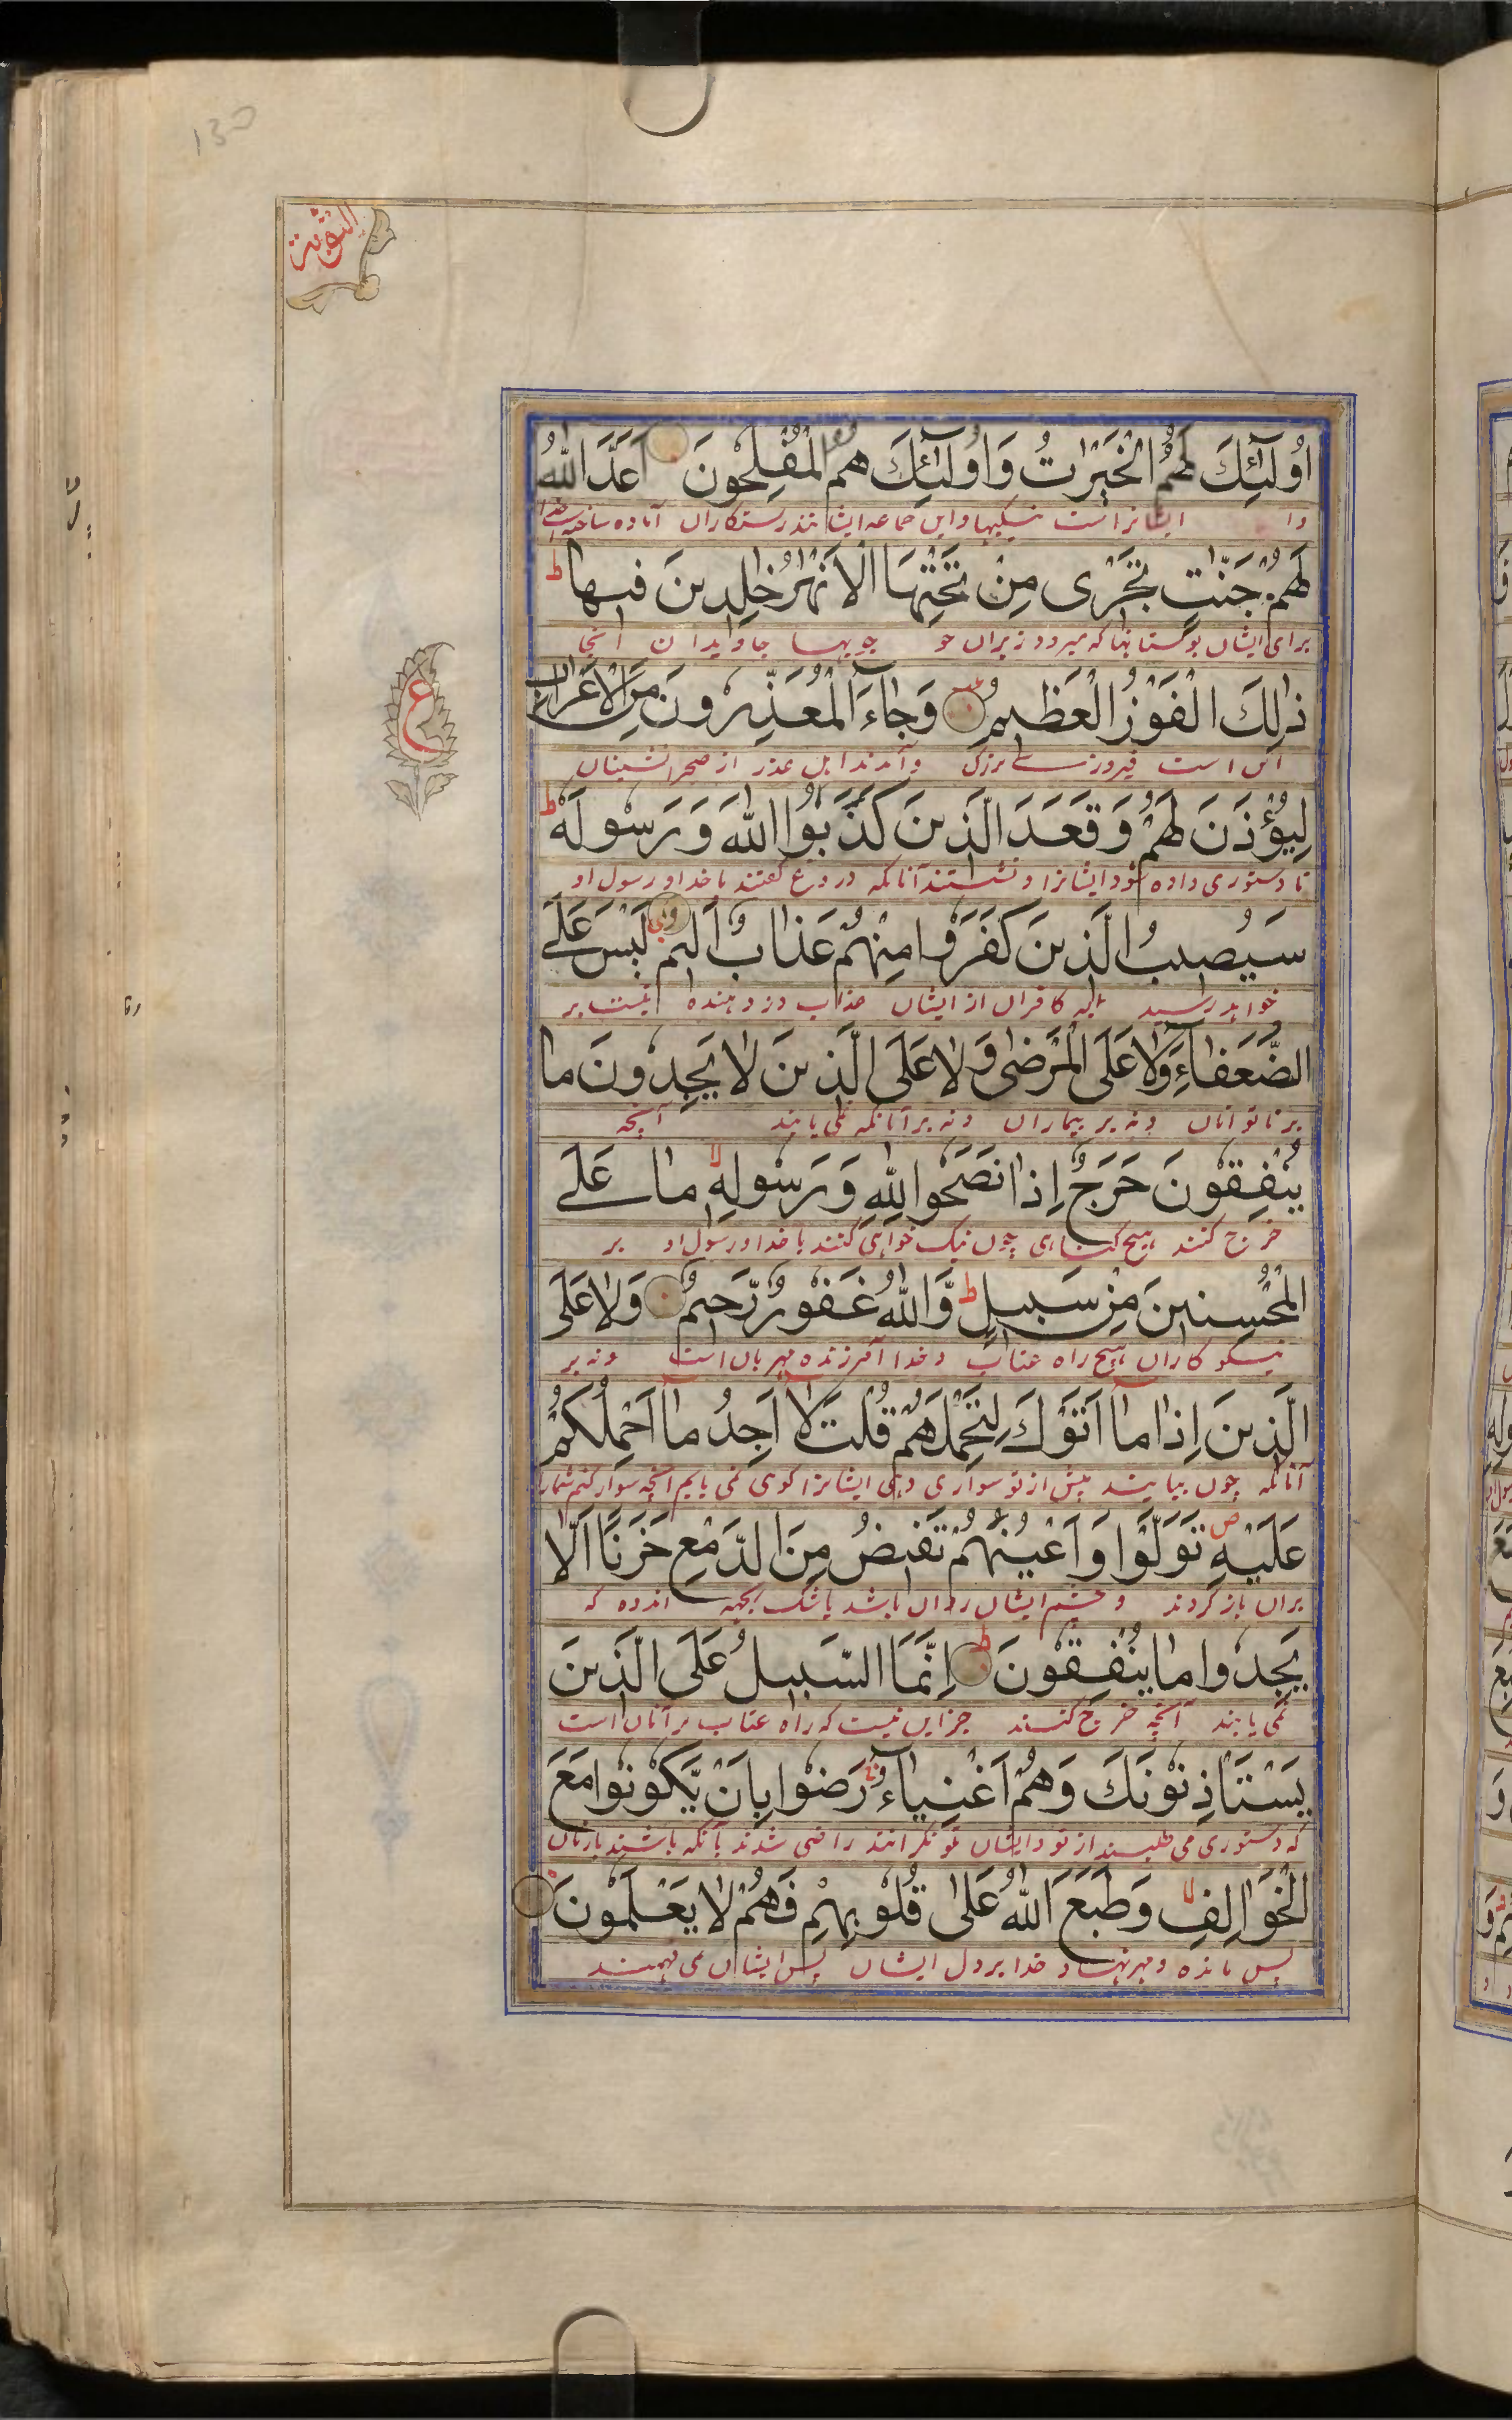 130
التوبة
اُولٰٓئِكَ لَهُمُ الْخَيْرٰتُ وَاُولٰٓئِكَ هُمُ الْمُفْلِحُونَ اَعَدَّ اللّٰهُ
وا ایشانراست نیکیها و این جماعه ایشانند رستکاران آماده ساخته است خدا
لَهُمْ جَنّٰتٍ تَجْرٰى مِنْ تَحْتِهَا الْاَنْهٰرُ خٰلِدِينَ فِيهَا ط
برای ایشان بوستانها که میرود زیران جو جویها جاویدان انجا
ذٰلِكَ الْفَوْزُ الْعَظِيمُ وَجَآءَ الْمُعَذِّرُونَ مِنَ الْاَعْرَابِ
این است فیروزی بزرک و آمدند اهل عذر از صحرانشینان
ع
لِيُؤْذَنَ لَهُمْ وَقَعَدَ الَّذِينَ كَذَبُوا اللّٰهَ وَرَسُولَهُ ط
تا دستوری داده شود ایشانرا و نشستند آنانکه دروغ کفتند با خدا و رسول او
سَيُصِيبُ الَّذِينَ كَفَرُوا مِنْهُمْ عَذَابٌ اَلِيمٌ لَيْسَ عَلَى
خواهد رسید کافران از ایشان عذاب درد دهنده نیست بر
الضُّعَفَآءِ وَلَا عَلَى الْمَرْضٰى وَلَا عَلَى الَّذِينَ لَا يَجِدُونَ مَا
بر ناتوانان ونه بر بیماران ونه بر آنانکه نمی یابند آنچه
يُنْفِقُونَ حَرَجٌ اِذَا نَصَحُوا لِلّٰهِ وَرَسُولِهِ لا مَا عَلَى
خرج کنند هیچ کناهی چون نیک خواهی کنند با خدا و رسول او بر
الْمُحْسِنِينَ مِنْ سَبِيلٍ ط وَّاللّٰهُ غَفُورٌ رَّحِيمٌ وَلَا عَلَى
نیکو کاران هیچ راه عتاب و خدا آمرزنده مهربان است ونه بر
الَّذِينَ اِذَا مَآ اَتَوْكَ لِتَحْمِلَهُمْ قُلْتَ لَآ اَجِدُ مَآ اَحْمِلُكُمْ
آنانکه چون بیایند پیش از تو سواری دهی ایشانرا کوی نمی یابم آنچه سوار کنم شمارا
عَلَيْهِ ص تَوَلَّوْا وَاَعْيُنُهُمْ تَفِيضُ مِنَ الدَّمْعِ حَزَنًا اَلَّا
بران باز کردند و چشم ایشان روان باشد باشک بجهة اندوه که
يَجِدُوا مَا يُنْفِقُونَ ط اِنَّمَا السَّبِيلُ عَلَى الَّذِينَ
نمی یابند آنچه خرج کنند جز این نیست که راه عتاب بر آنان است
يَسْتَاْذِنُونَكَ وَهُمْ اَغْنِيَآءُ رَضُوا بِاَنْ يَّكُونُوا مَعَ
که دستوری می طلبند از تو و ایشان تونکرانند راضی شدند بآنکه باشند با زنان
الْخَوَالِفِ لا وَطَبَعَ اللّٰهُ عَلٰى قُلُوبِهِمْ فَهُمْ لَا يَعْلَمُونَ
پس مانده و مهر نهاد خدا بر دل ایشان پس ایشان نمی فهمند